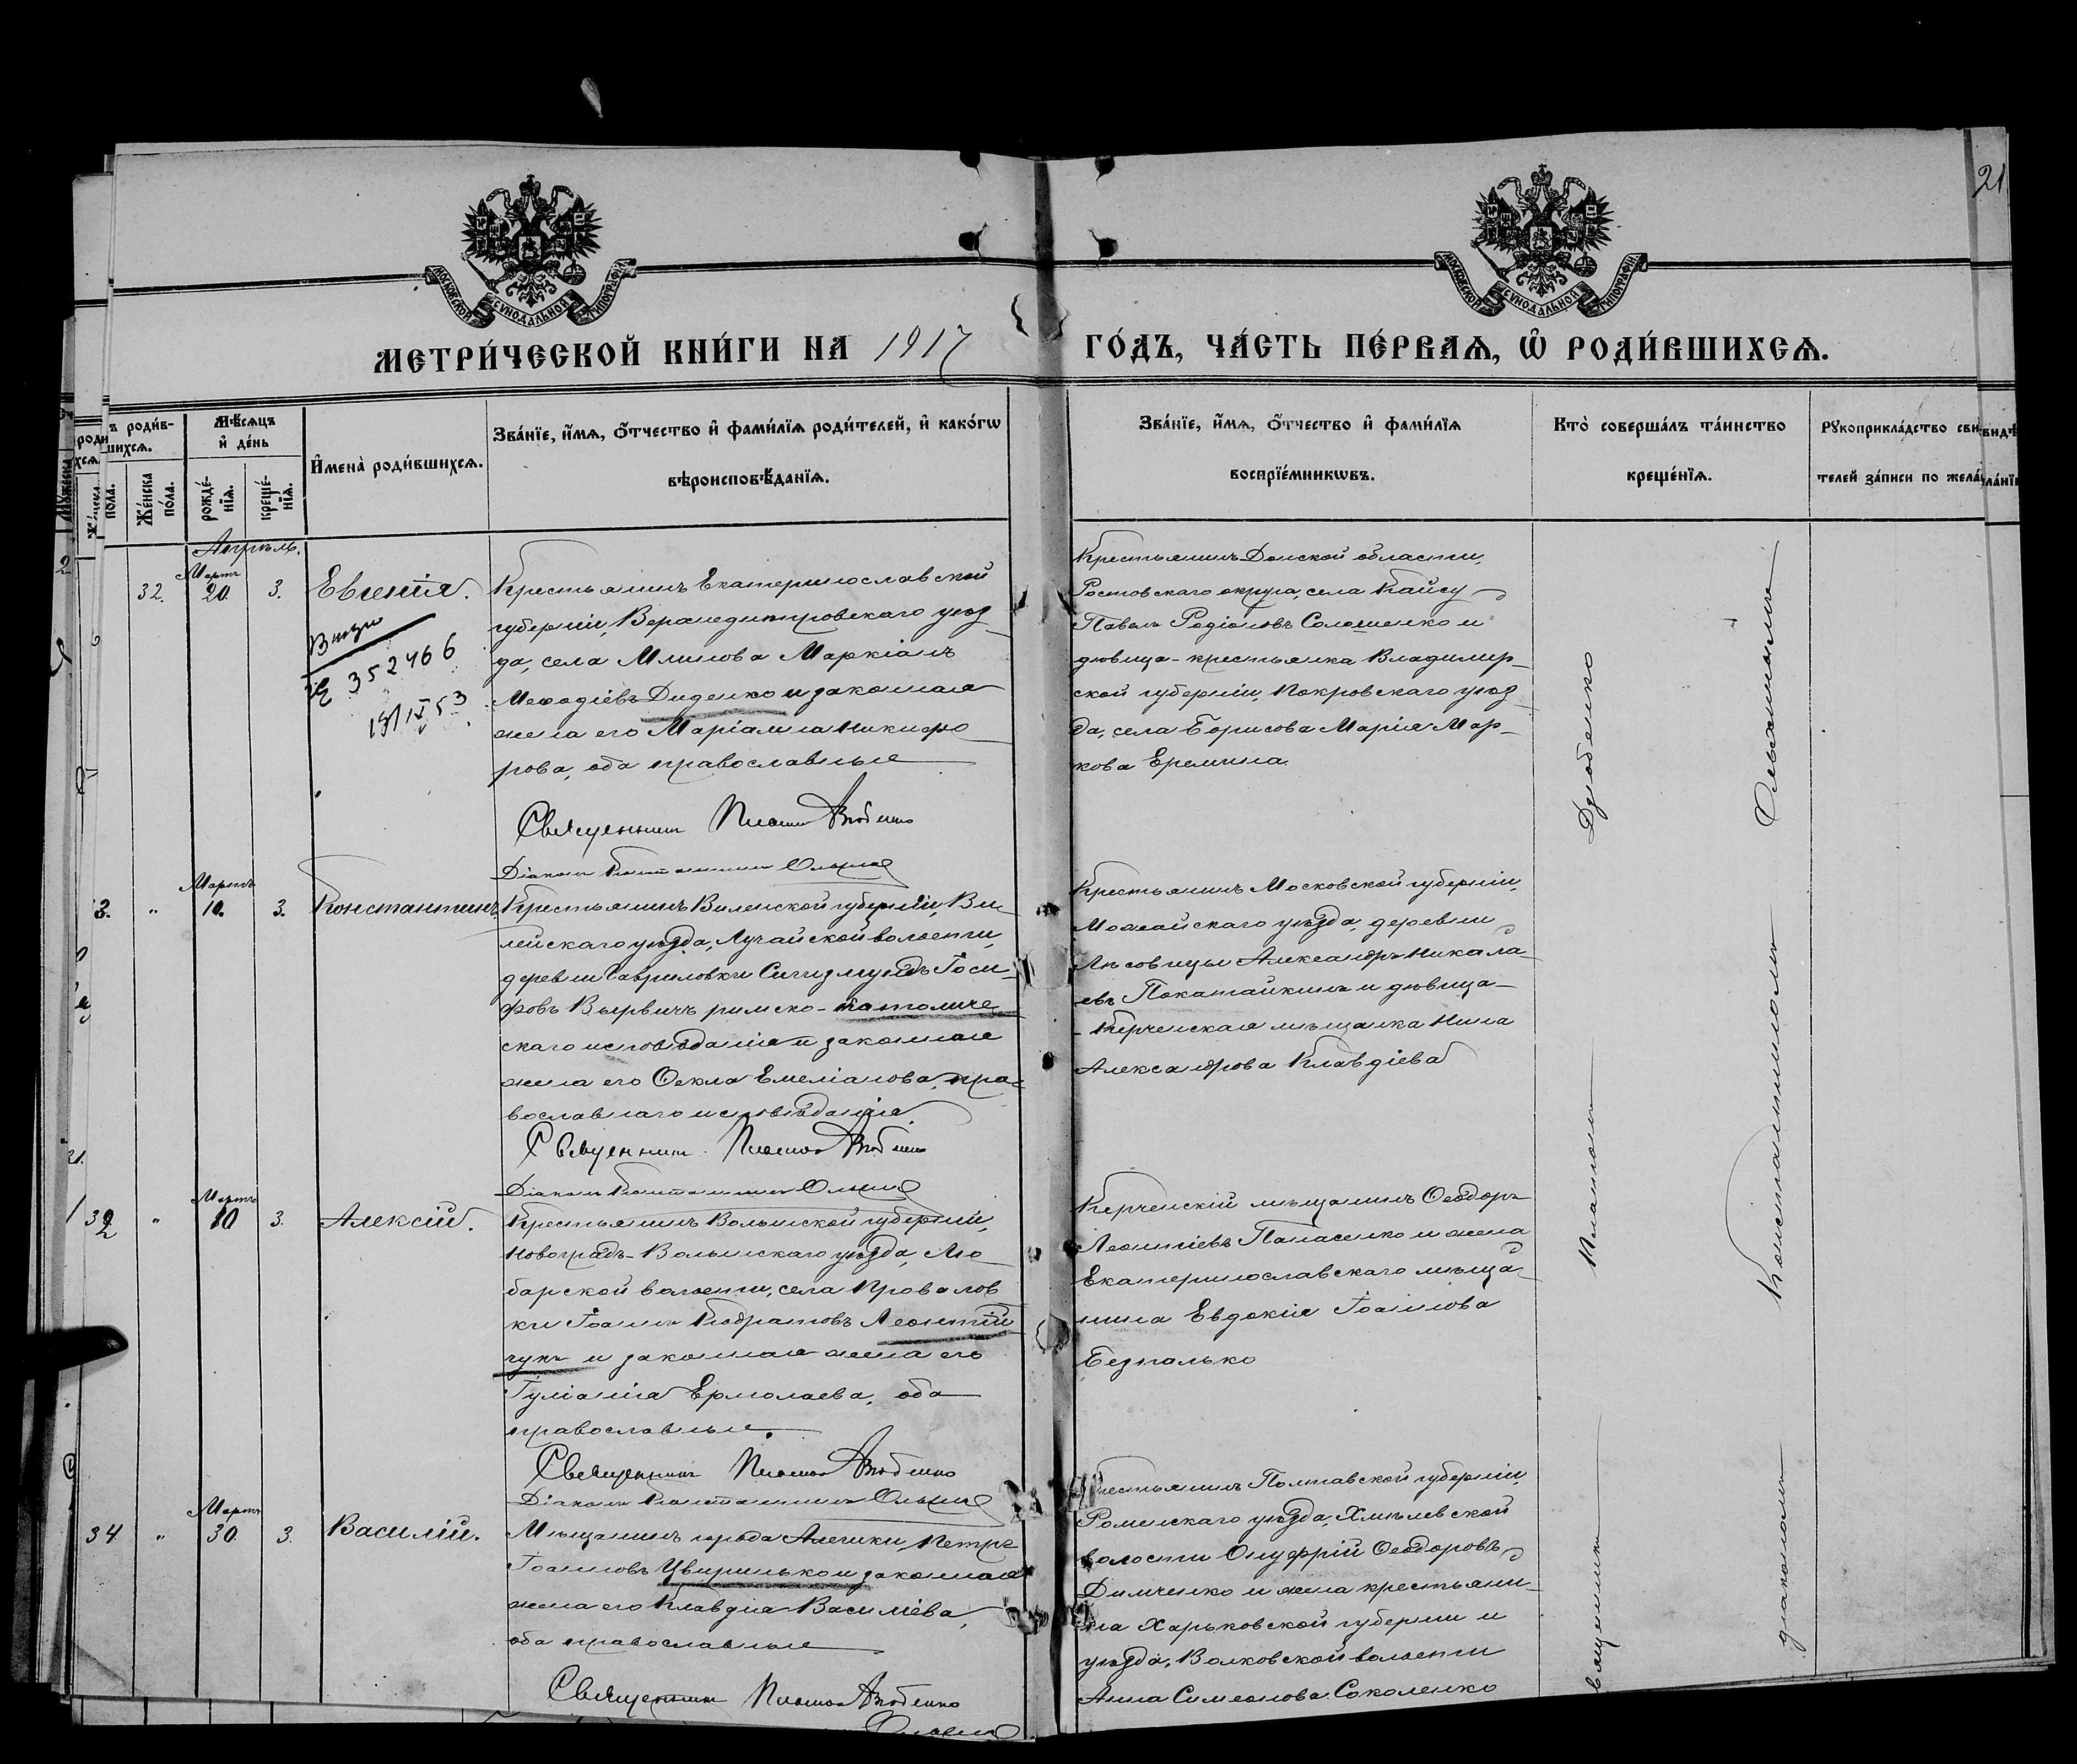 21
МОСКОВСКОЙ СУНОДАЛЬНОЙ ТИПОГРАФІИ
МОСКОВСКОЙ СУНОДАЛЬНОЙ ТИПОГРАФІИ
МЕТРИ́ЧЕСКОЙ КНИ́ГИ НА 1917
ГО́ДЪ, ЧА́СТЬ ПЕ́РВАѦ, Ѡ РОДИ́ВШИХСѦ.
ъ роди́в-
шихсѧ.
пола.
Же́нска
по́ла.
Мѣ́сѧцъ
и҆ де́нь
рожде́-
нїѧ.
креще́-
нїѧ.
И҆мена̀ роди́вшихсѧ.
Зва́нїе, и҆́мѧ, ѻ҆́тчество и҆ фами́лїѧ роди́телей, и҆ како́гѡ
вѣроисповѣ́данїѧ.
Зва́нїе, и҆́мѧ, ѻ҆́тчество и҆ фами́лїѧ
воспрїе́мникѡвъ.
Кто̀ соверша́лъ та́инство
креще́нїѧ.
Рꙋкоприкла́дство сви
телей за́писи по жела́
Апрѣль.
Мартъ
32. 20. 3.
Евгенія.
352466
Крестьянинъ Екатеринославской
губерніи, Верхнеднѣпровскаго уѣз-
да, села Млинова Маркіанъ
Меѳодіевъ Диденко и законная
жена его Маріамна Никифо-
рова, оба православные
Священникъ
Діаконъ Константинъ
Крестьянинъ Донской области,
Ростовскаго округа, села Кайсу
Павелъ Родіоновъ Солошенко и
дѣвица-крестьянка Владимир-
ской губерніи, Покровскаго уѣз-
да, села Борисова Марія Мар-
кова Еремина.
Мартъ
3. " 10. 3.
Константинъ.
Крестьянинъ Виленской губерніи, Ви-
лейскаго уѣзда, Лучайской волости,
деревни Гавриловки Сигизмундъ Іоси-
фовъ Вырвичъ римско-католиче-
скаго исповѣданія и законная
жена его Ѳекла Емеліанова, пра-
вославнаго исповѣданія.
Священникъ
Діаконъ Константинъ
Крестьянинъ Московской губерніи,
Можайскаго уѣзда, деревни
Лысовицы Александръ Никола-
евъ Покатайкинъ и дѣвица-
-Керченская мѣщанка Нина
Александрова Клавдіева
Мартъ
32 " 10 3.
Алексій.
Крестьянинъ Волынской губерніи,
Новоградъ-Волынскаго уѣзда, Лю-
барской волости, села Провалов-
ки Іоаннъ Кодратовъ Леонтій-
чукъ и законная жена его
Іуліанія Ермолаева, оба
православные.
Священникъ
Діаконъ Константинъ
Керченскій мѣщанинъ Ѳеодоръ
Леонтіевъ Панасенко и жена
Екатеринославскаго мѣща-
нина Евдокія Іоаннова
Безпалько
Мартъ
34 " 30. 3.
Василій.
Мѣщанинъ города Алешки, Петръ
Іоанновъ Цвиринько и законная
жена его Клавдіа Василіева,
оба православные
Священникъ
Крестьянинъ Полтавской губерніи,
Роменскаго уѣзда, Хмѣлевской
волости Онуфрій Ѳеодоровъ
Димченко и жена крестьяни-
на Харьковской губерніи и
уѣзда, Волковской волости
Анна Симеонова Соколенко
вященникъ Платонъ
діакономъ Константиномъ